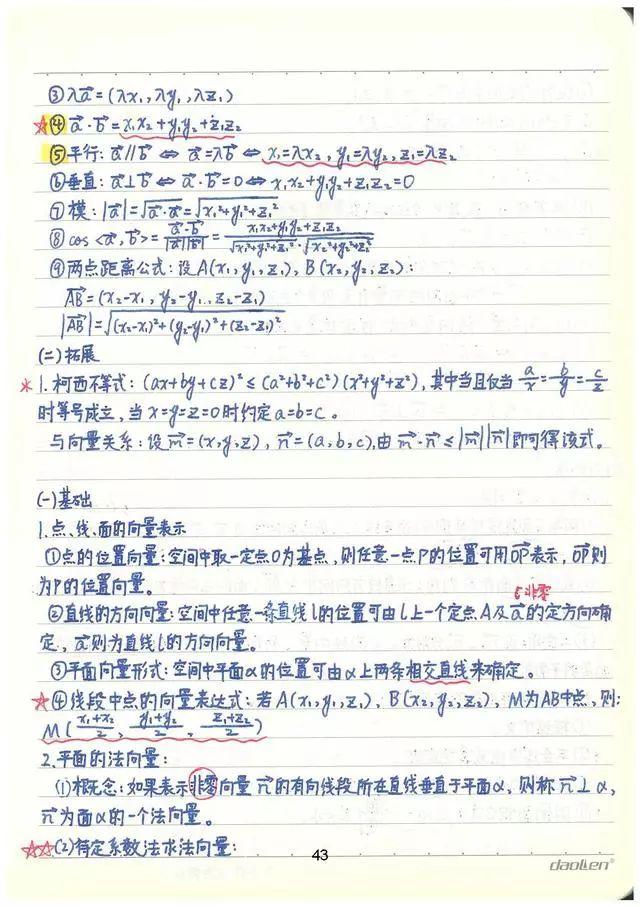 ③λa⃗=(λx₁,λy₁,λz₁)
☆④ a⃗·b⃗=x₁x₂+y₁y₂+z₁z₂
⑤平行: a⃗∥b⃗ ⇔ a⃗=λb⃗ ⇔ x₁=λx₂, y₁=λy₂, z₁=λz₂
⑥垂直: a⃗⊥b⃗ ⇔ a⃗·b⃗=0 ⇔ x₁x₂+y₁y₂+z₁z₂=0
⑦模: |a⃗|=√(a⃗·a⃗)=√(x₁²+y₁²+z₁²)
⑧cos<a⃗,b⃗>=(a⃗·b⃗)/(|a⃗||b⃗|)=(x₁x₂+y₁y₂+z₁z₂)/(√(x₁²+y₁²+z₁²)·√(x₂²+y₂²+z₂²))
⑨两点距离公式:设A(x₁,y₁,z₁),B(x₂,y₂,z₂):
AB⃗=(x₂-x₁,y₂-y₁,z₂-z₁)
|AB⃗|=√((x₂-x₁)²+(y₂-y₁)²+(z₂-z₁)²)
(二)拓展
☆1.柯西不等式:(ax+by+cz)²≤(a²+b²+c²)(x²+y²+z²),其中当且仅当a/x=b/y=c/z
时等号成立,当x=y=z=0时约定a=b=c。
与向量关系:设m⃗=(x,y,z),n⃗=(a,b,c),由m⃗·n⃗≤|m⃗||n⃗|即可得该式。
(一)基础
1.点、线、面的向量表示
①点的位置向量:空间中取一定点O为基点,则任意一点P的位置可用OP⃗表示,OP⃗则
为P的位置向量。
非零
②直线的方向向量:空间中任意一条直线l的位置可由l上一个定点A及a⃗的定方向确
定,a⃗则为直线l的方向向量。
③平面向量形式:空间中平面α的位置可由α上两条相交直线来确定。
☆④线段中点的向量表达式:若A(x₁,y₁,z₁),B(x₂,y₂,z₂),M为AB中点,则:
M((x₁+x₂)/2,(y₁+y₂)/2,(z₁+z₂)/2)
2.平面的法向量:
(1)概念:如果表示非零向量n⃗的有向线段所在直线垂直于平面α,则称n⃗⊥α,
n⃗为面α的一个法向量。
☆☆(2)待定系数法求法向量:
43
daolen®